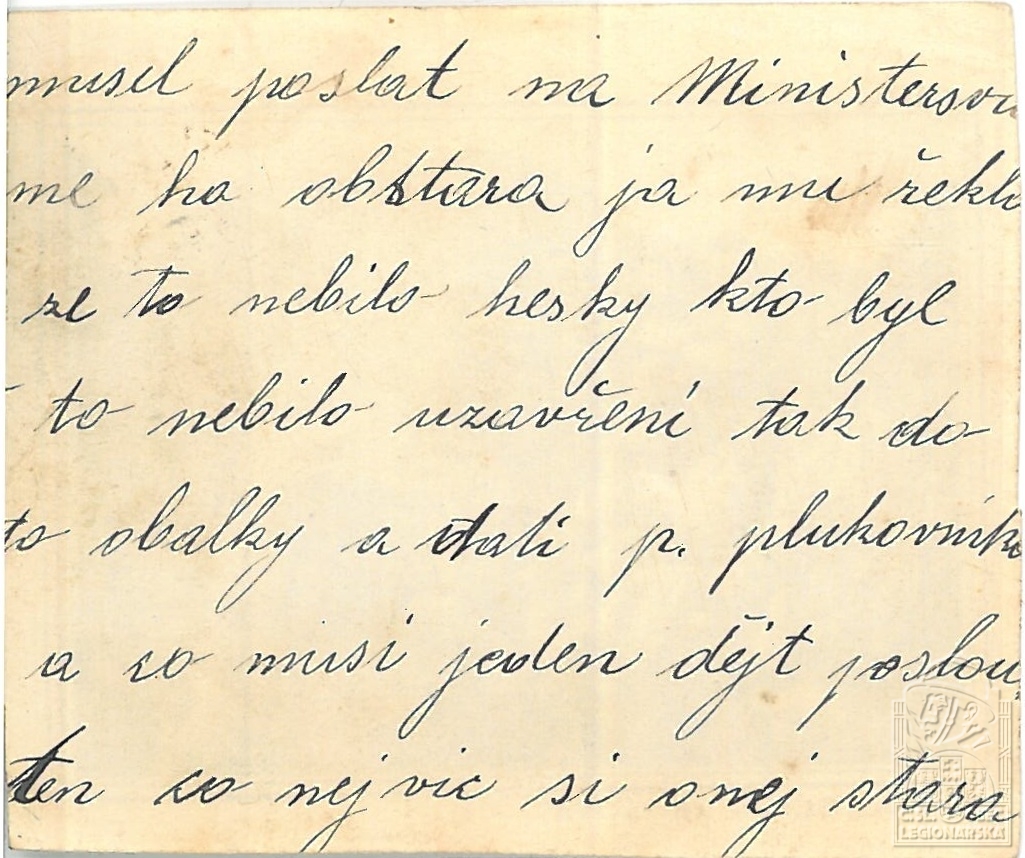 musel poslat na Ministersvu
me ho obstara ja mu řekla
ze to nebilo hesky kto byl
to nebilo uzavření tak do
to obalky a dati p. plukovník
a co musi jeden dějt poslou
ten co nejvic si o nej stara
LEGIONÁŘSKÁ